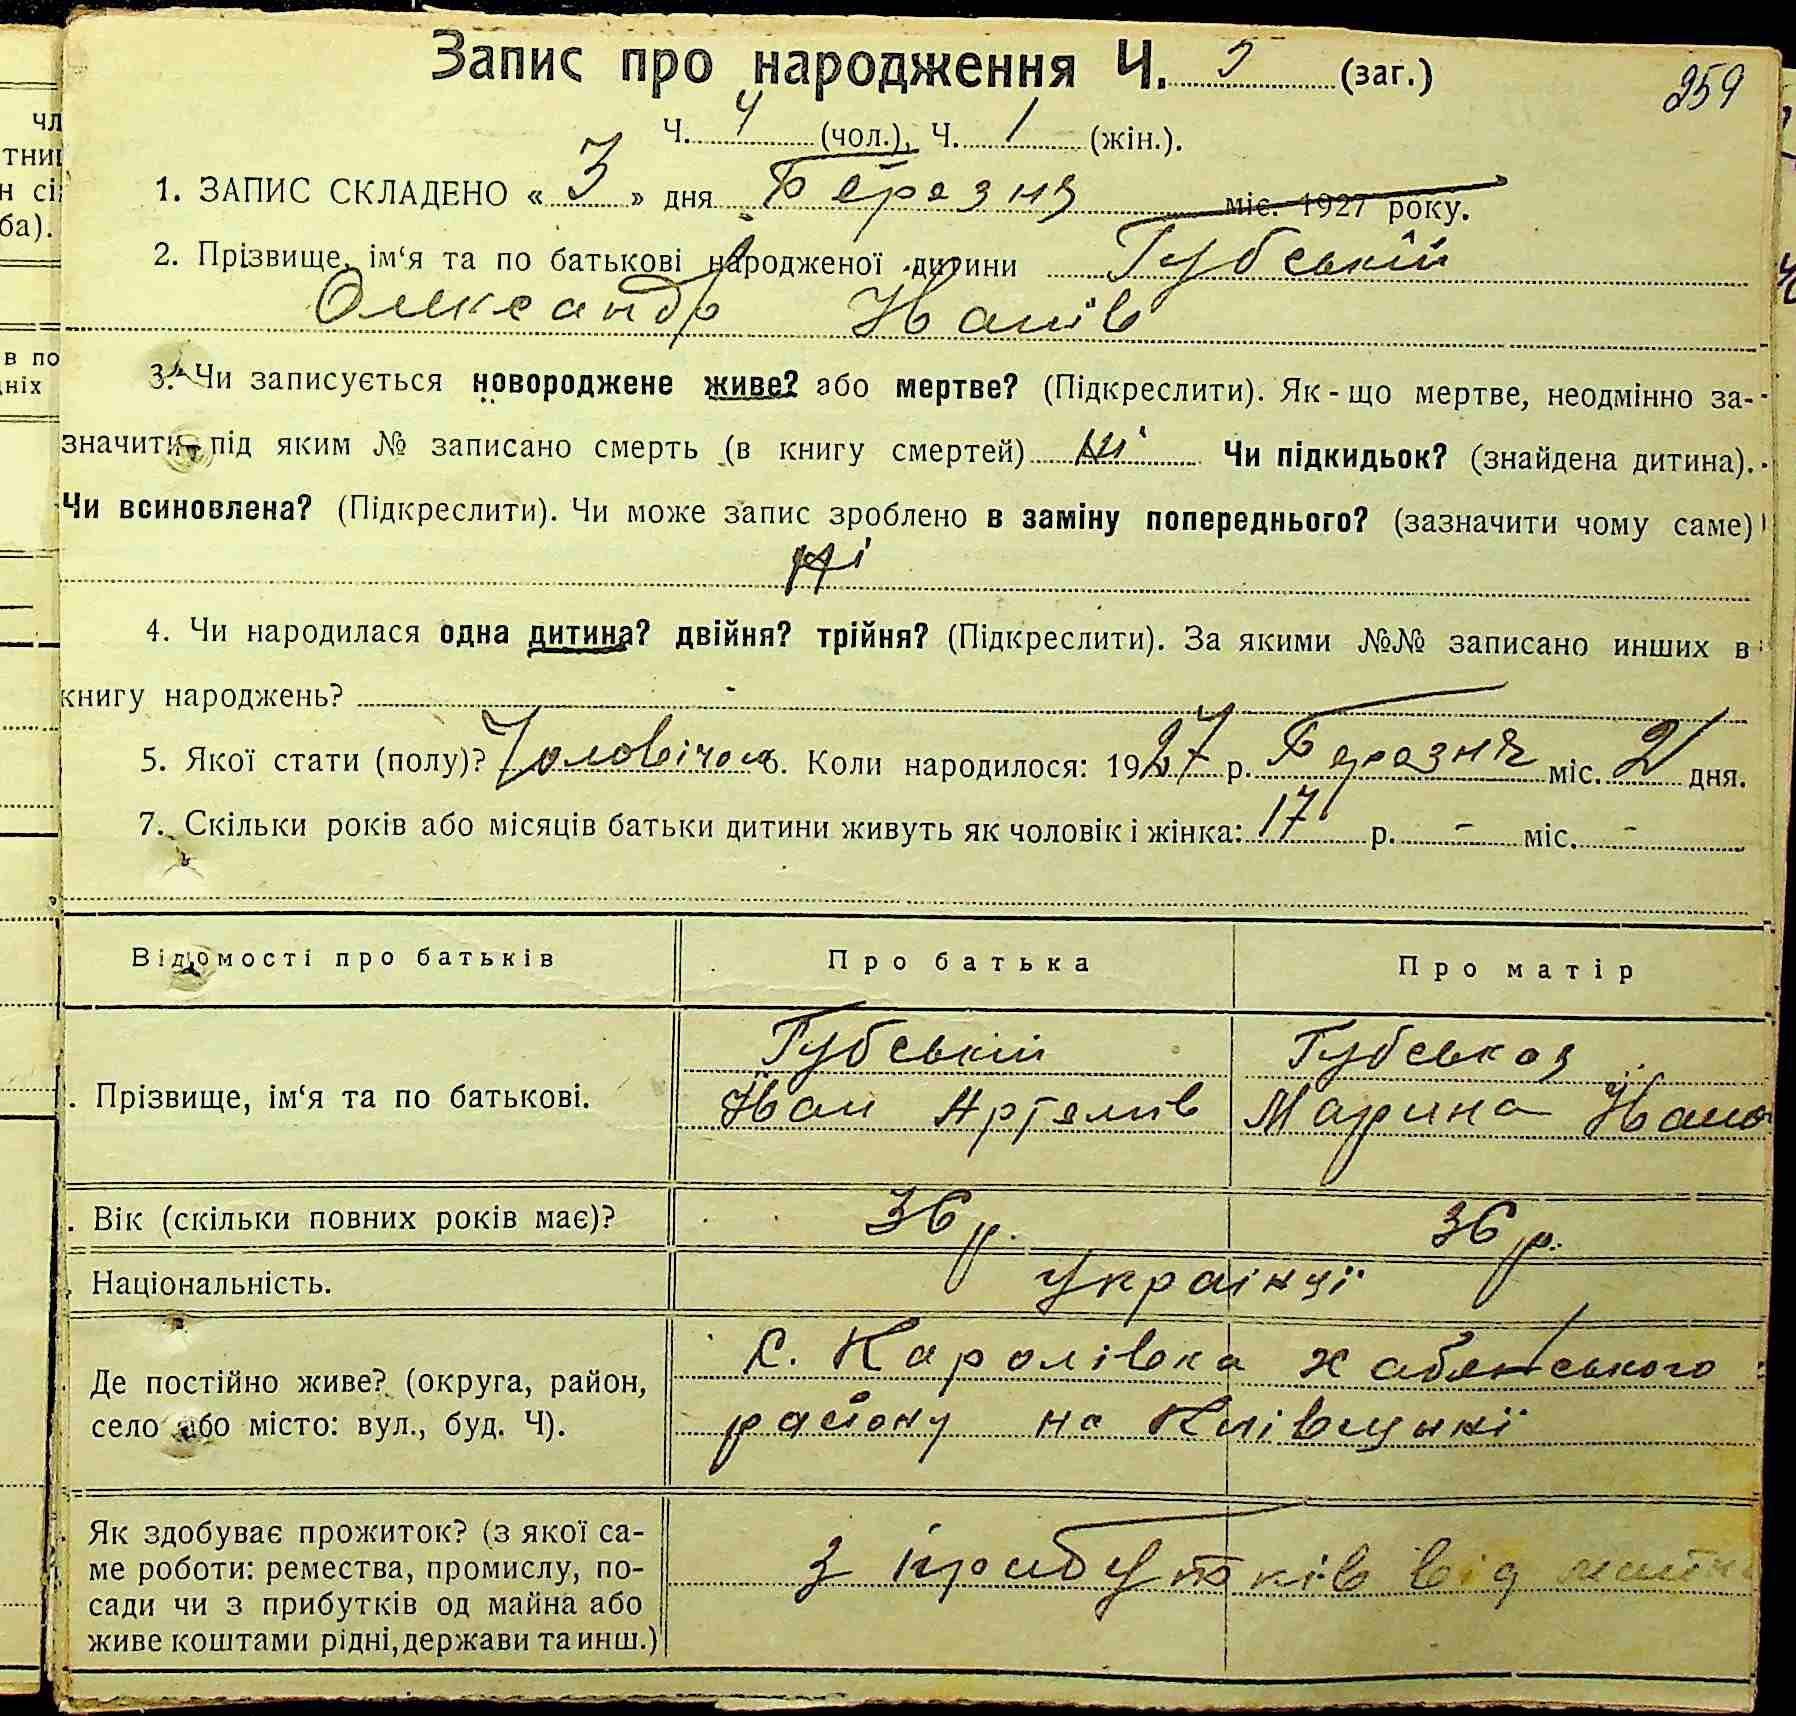 Запис про народження Ч. 5 (заг.)
259
Ч. 4 (чол.), Ч. 1 (жін.).
1. ЗАПИС СКЛАДЕНО « 3 » дня Березня міс. 1927 року.
2. Прізвище, ім‘я та по батькові народженої дитини Губській
Олександр Іванів
3. Чи записується новороджене живе? або мертве? (Підкреслити). Як - що мертве, неодмінно за-
значити під яким № записано смерть (в книгу смертей) Ні Чи підкидьок? (знайдена дитина).
Чи всиновлена? (Підкреслити). Чи може запис зроблено в заміну попереднього? (зазначити чому саме)
Ні
4. Чи народилася одна дитина? двійня? трійня? (Підкреслити). За якими №№ записано инших в
книгу народжень? -
5. Якої стати (полу)? Чоловічої 6. Коли народилося: 1927 р. Березня міс. 2 дня.
7. Скільки років або місяців батьки дитини живуть як чоловік і жінка: 17 р. - міс. -
Відомості про батьків Про батька Про матір
. Прізвище, ім‘я та по батькові. Губській Губськая
Іван Артемів Марина Івано
. Вік (скільки повних років має)? 36 р. 36 р.
. Національність. Українці
Де постійно живе? (округа, район,
село або місто: вул., буд. Ч).
с. Каролівка Хабенського
району на Київщині
Як здобуває прожиток? (з якої са-
ме роботи: ремества, промислу, по-
сади чи з прибутків од майна або
живе коштами рідні, держави та инш.)
З прибутків від майна
чл
тни
н сі
ба).
в по
дніх